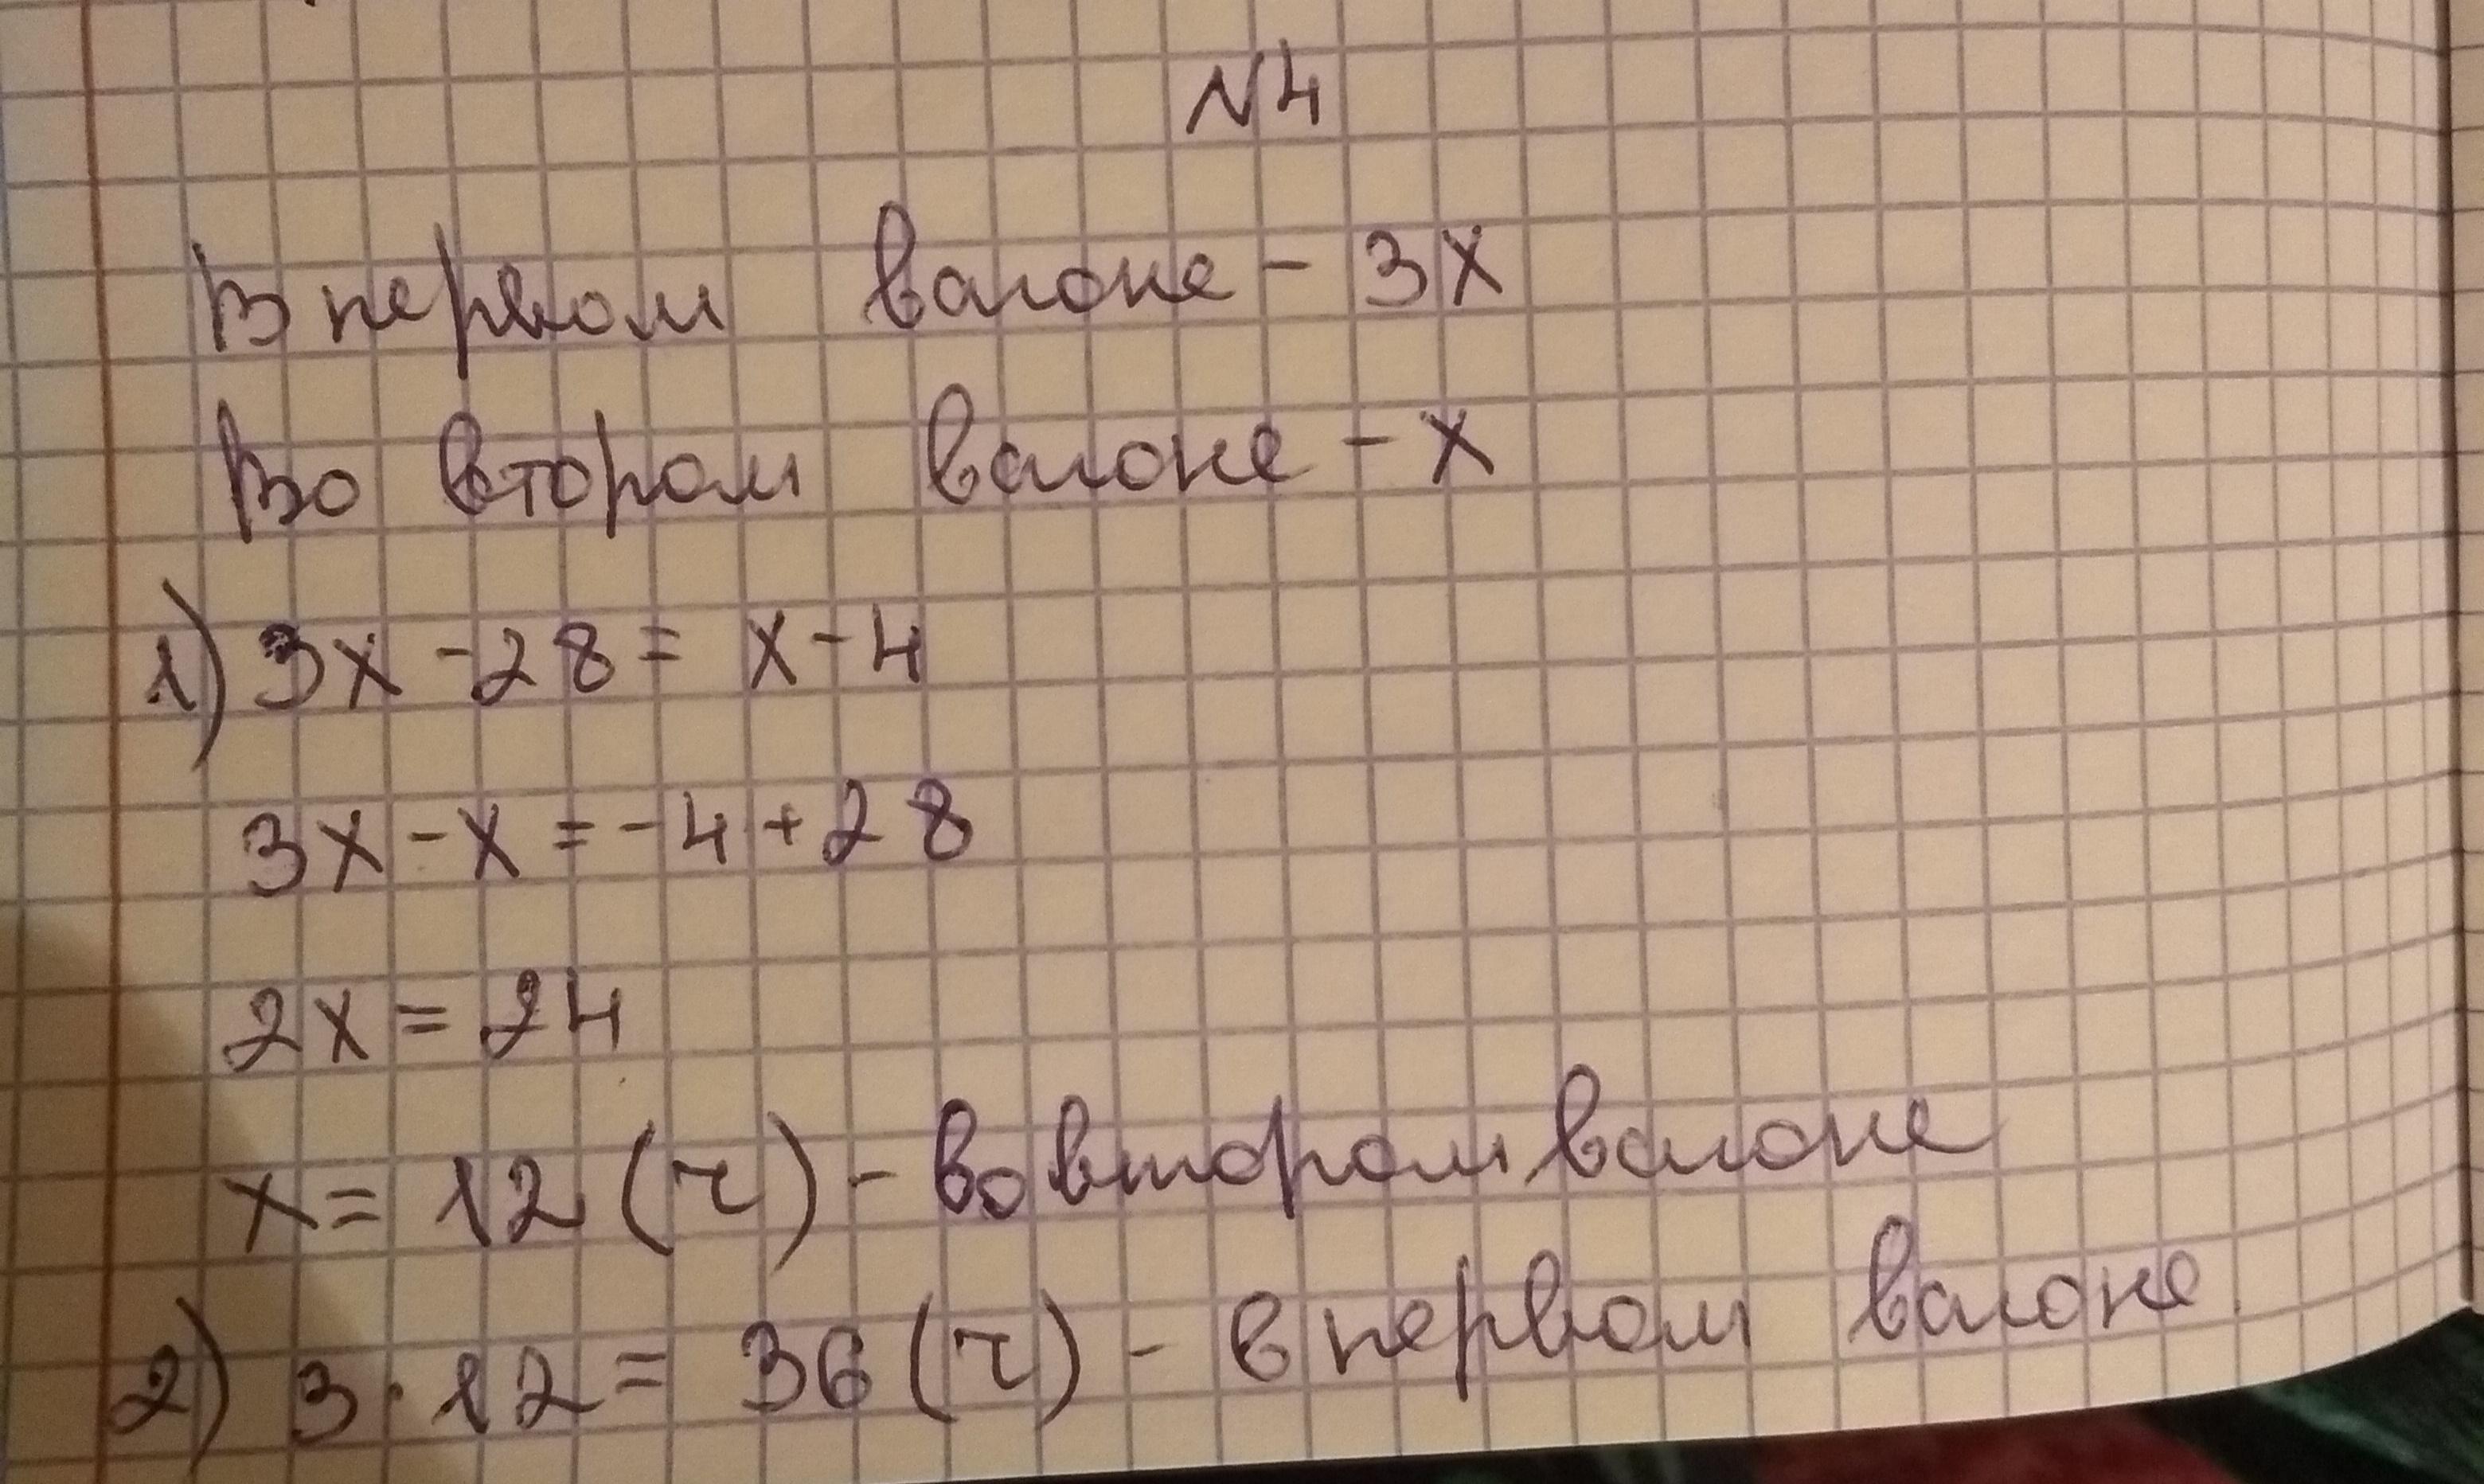 N4
В первом вагоне - 3х
Во втором вагоне - х
1) 3х - 28 = х - 4
3х - х = -4 + 28
2х = 24
х = 12 (ч) - во втором вагоне
2) 3 · 12 = 36 (ч) - в первом вагоне